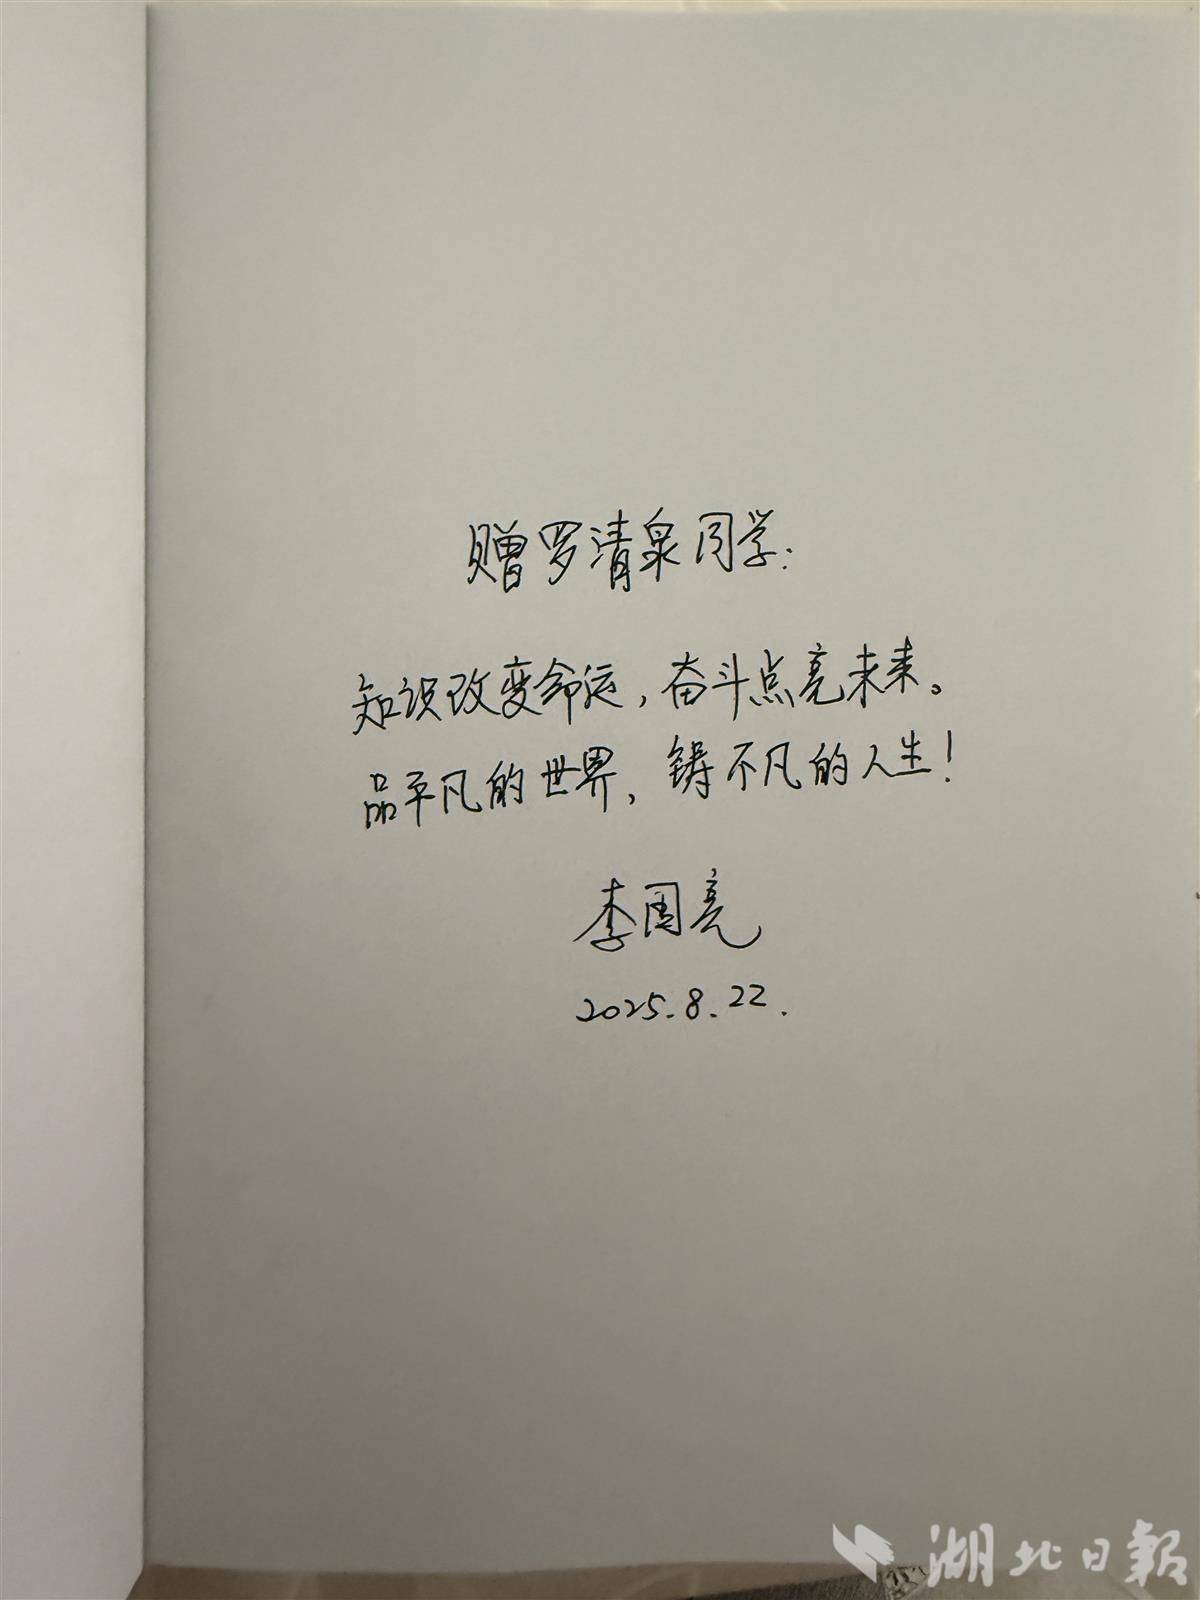 赠罗清泉同学：
知识改变命运，奋斗点亮未来。
品平凡的世界，铸不凡的人生！
李国亮
2025.8.22.
湖北日報